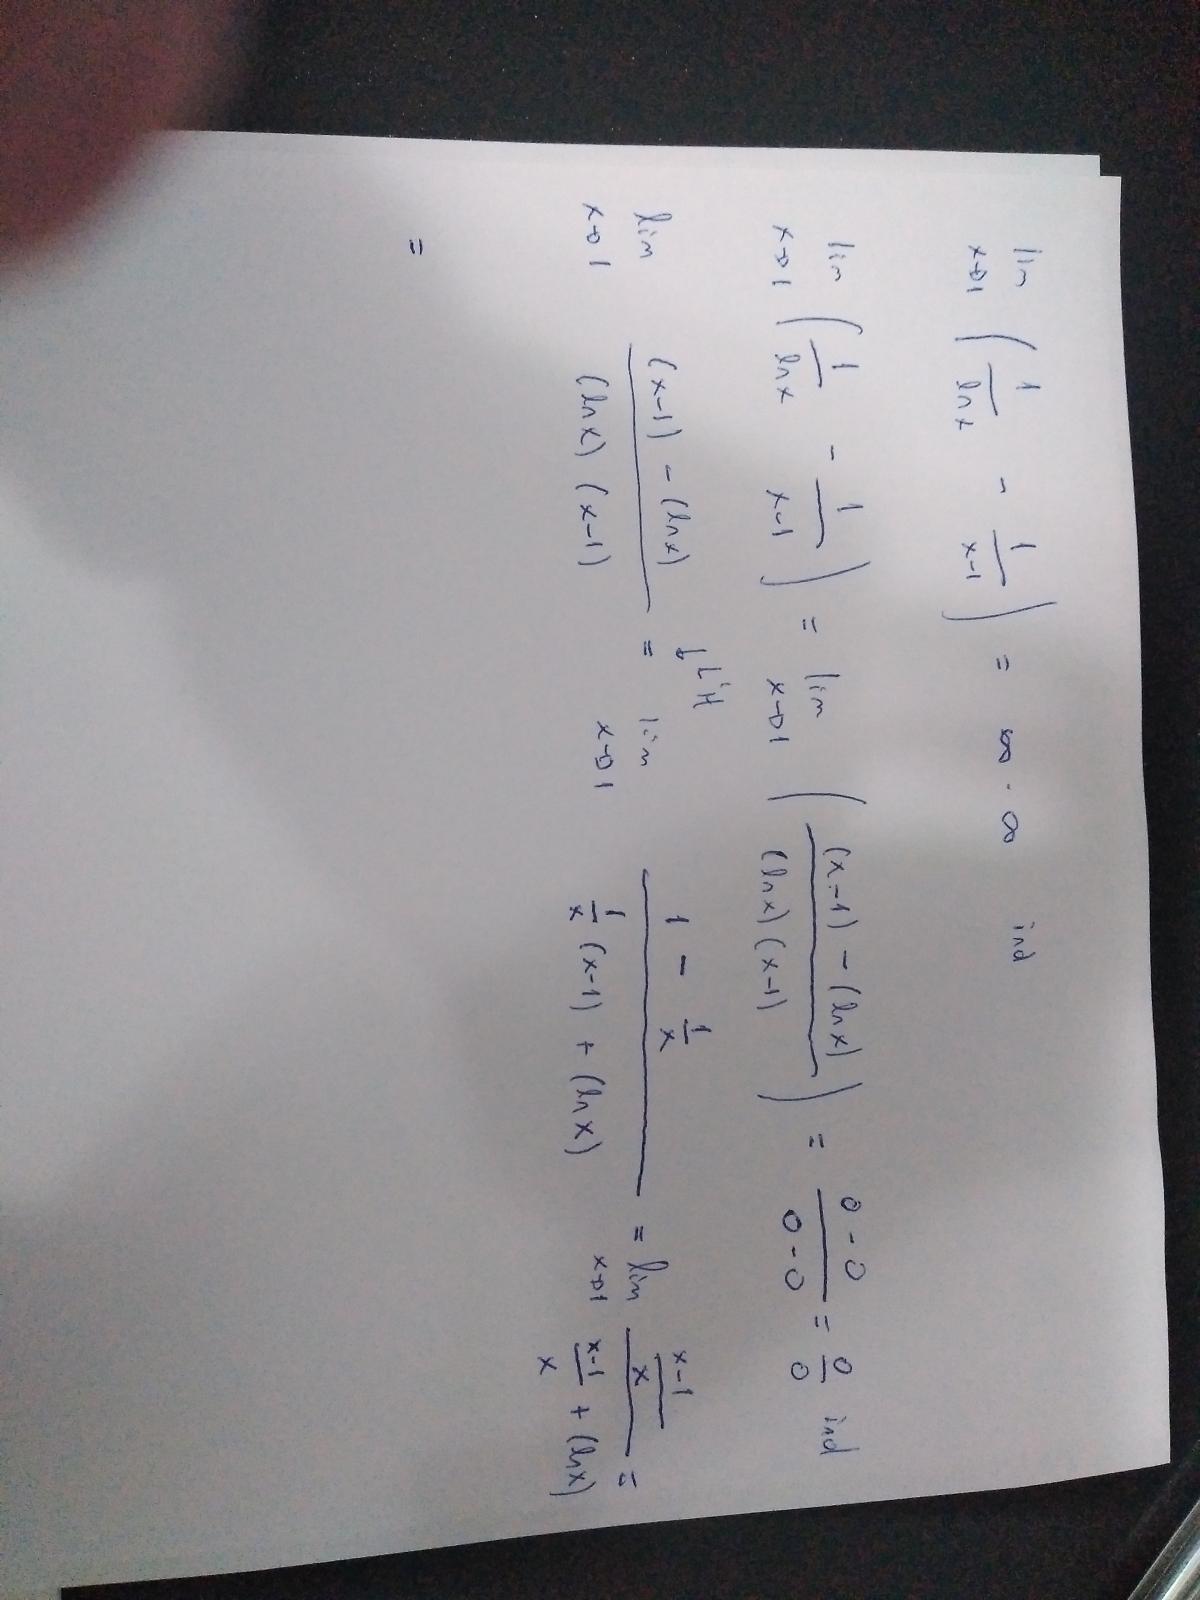 lim x→1 ( 1/ln x - 1/x-1 ) = ∞ · ∞ ind
lim x→1 ( 1/ln x - 1/x-1 ) = lim x→1 ( (x-1) - (ln x) / (ln x) (x-1) ) = 0-0 / 0-0 = 0/0 ind
lim x→1 (x-1) - (ln x) / (ln x) (x-1) = L'H ↓ lim x→1 1 - 1/x / 1/x (x-1) + (ln x) = lim x→1 x-1/x / x-1/x + (ln x) =
=